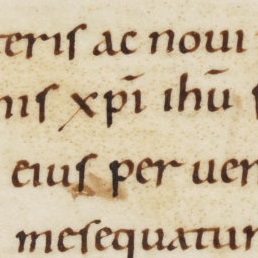 teris ac noui
nis xp̄i ihū s
eius per uer
mesequatur